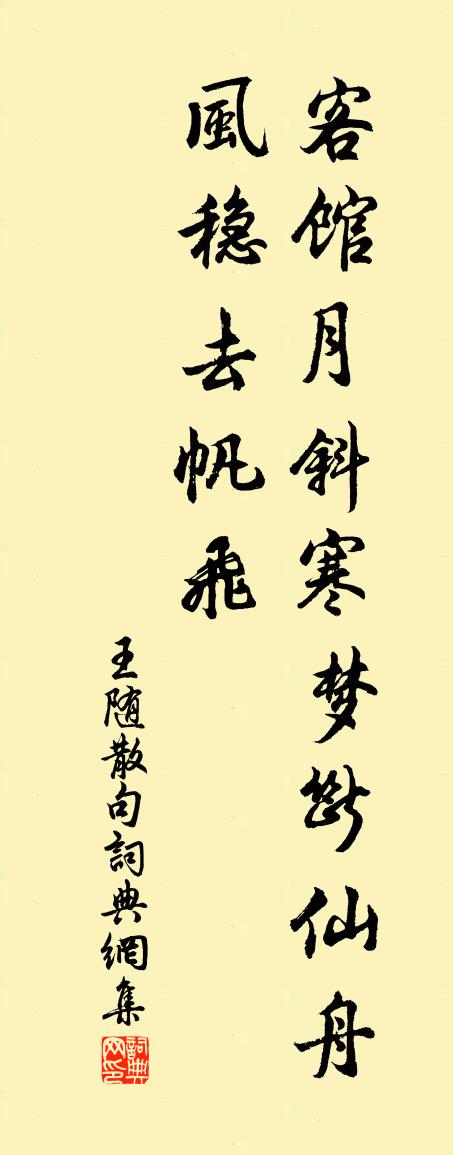 客館月斜寒梦斷仙舟
風稳去帆飛
王随散句詞典網集
詞典网印